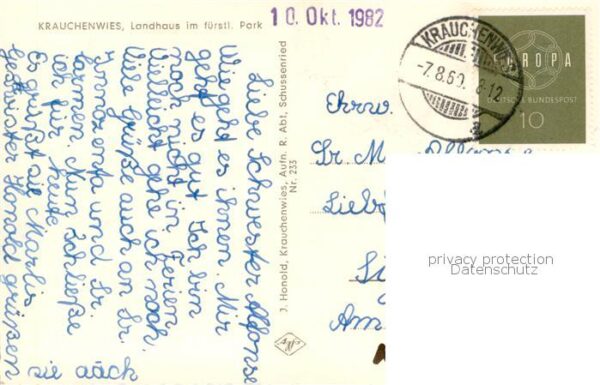 KRAUCHENWIES, Landhaus im fürstl. Park
10. Okt. 1982
KRAUCHENWIES
-7.8.60. 8-12
a
EUROPA
DEUTSCHE BUNDESPOST
10
Liebe Schwester Alfonse
Wie geht es ihnen. Mir
geht es gut. Ich bin
noch nicht in Ferien
Villicht gehe ich noch.
Viele Grüße auch an Sr.
Innozenta und Sr.
Karmen. Nun schließe
ich für heute
Es grüßt sie Marlis
Geschwister Honold grüßen
sie aäck
J. Honold, Krauchenwies, Aufn. R. Abt, Schussenried
Nr. 235
Ehrw.
Sr. M.
Lieb
Am
privacy protection
Datenschutz